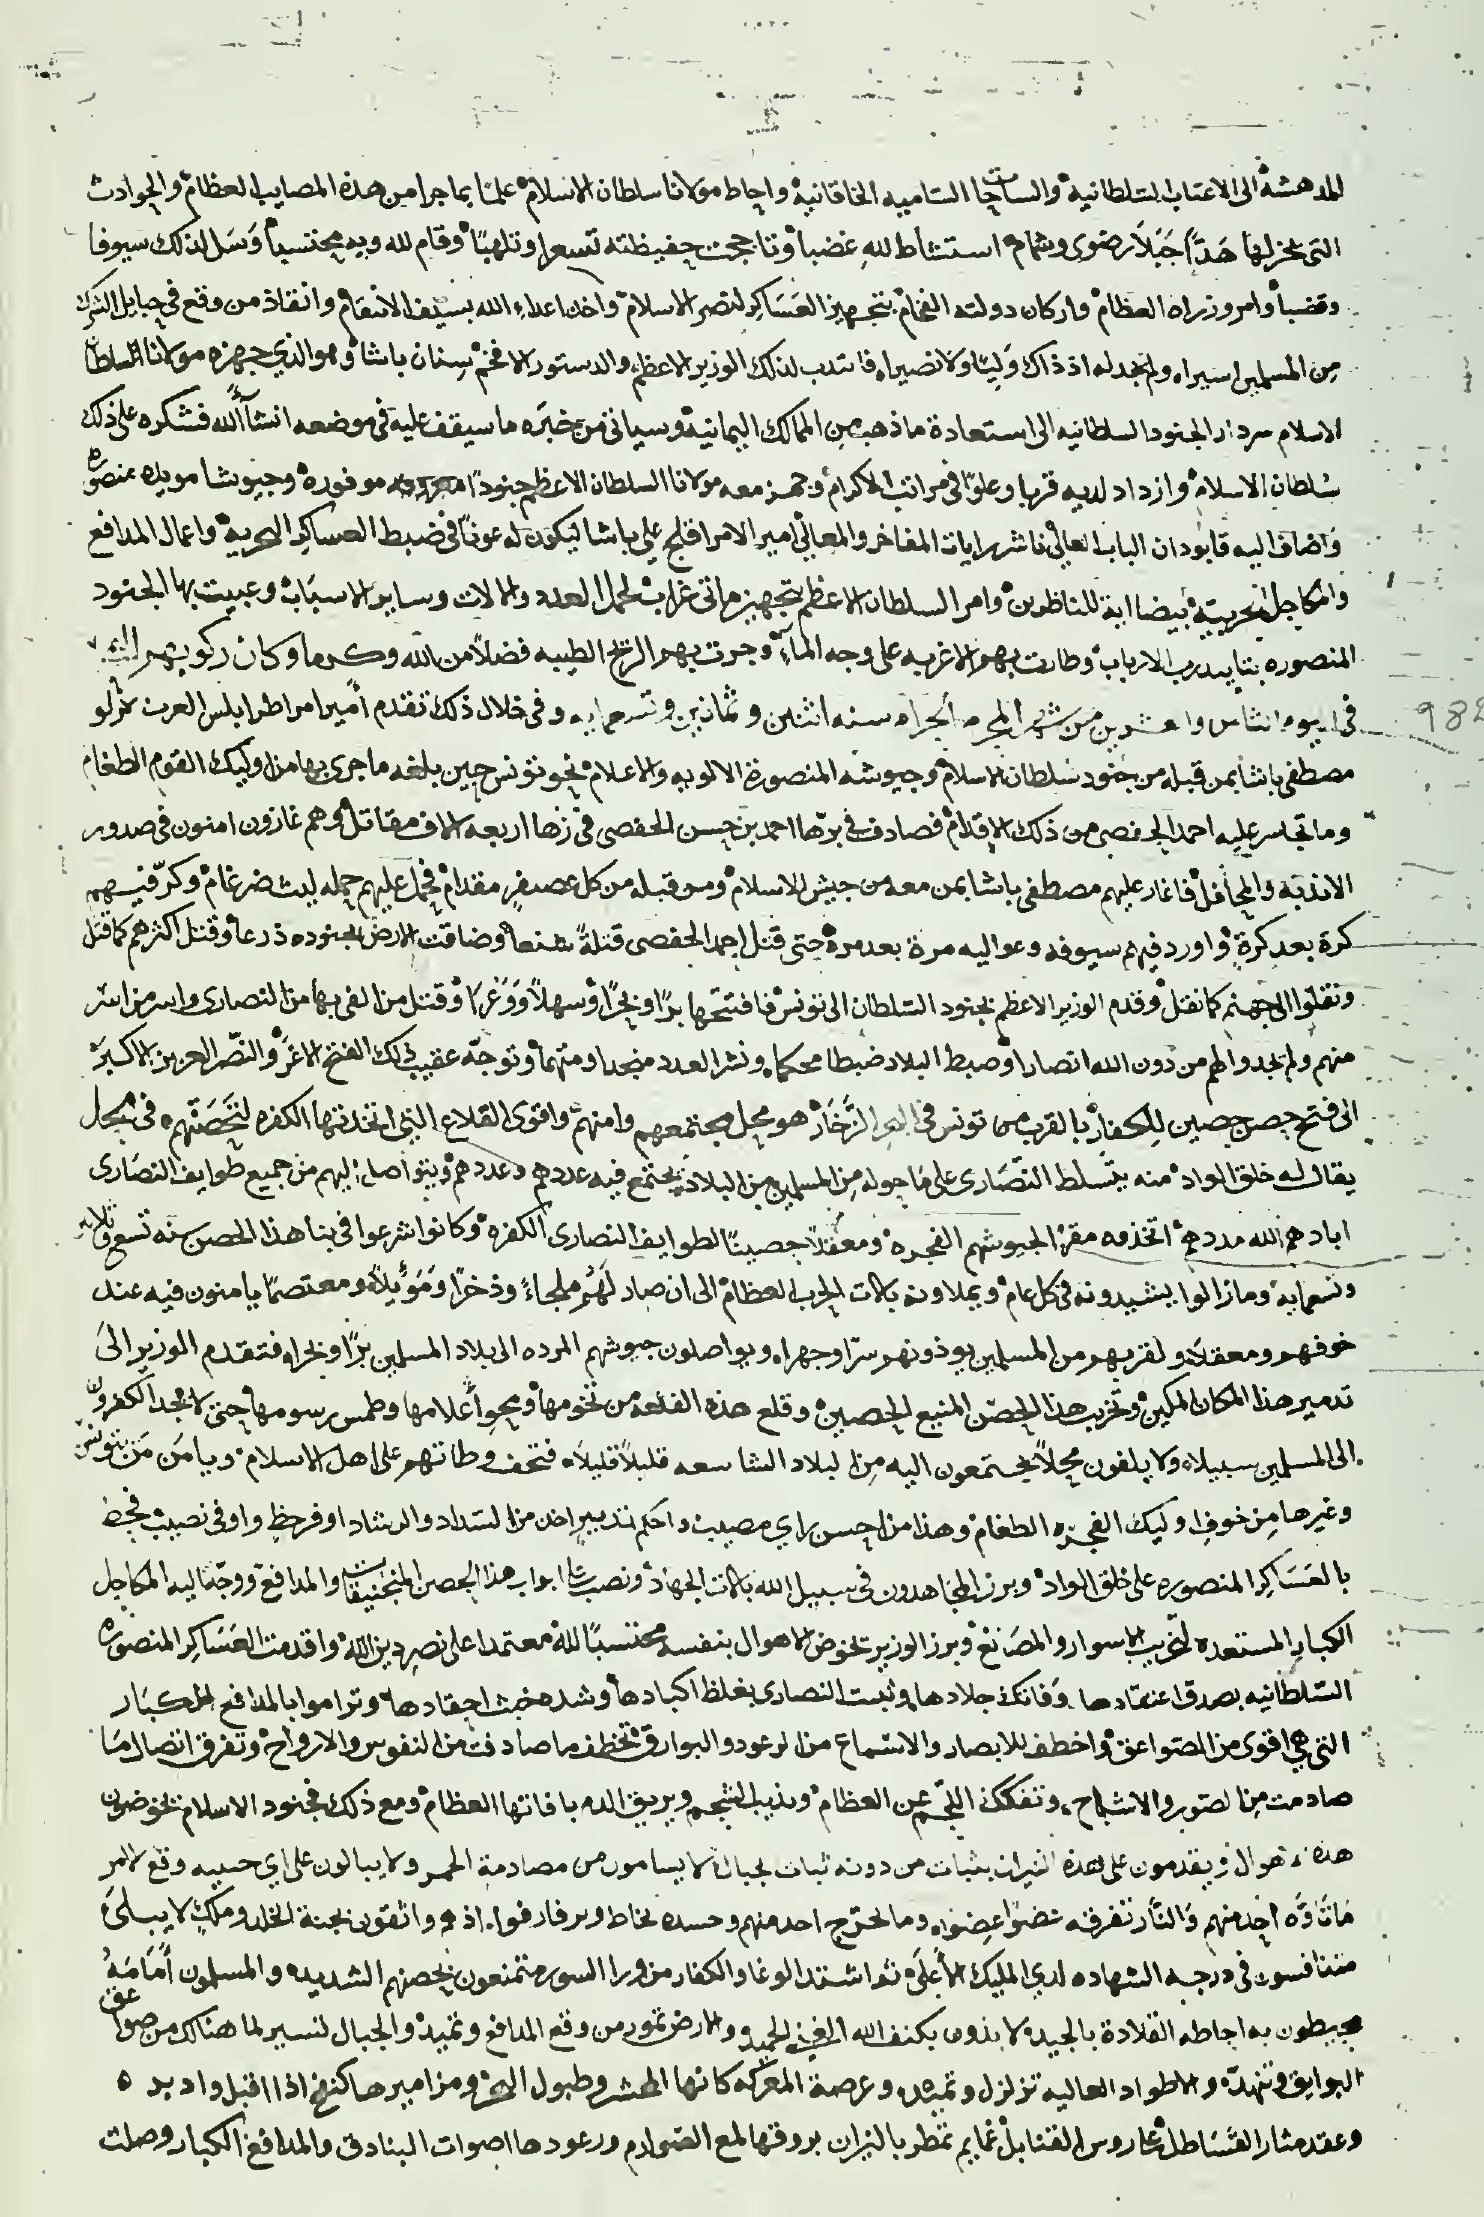 المدهشة الى الاعتاب السلطانية والساحات السامية الخاقانية واحاط مولانا سلطان الاسلام علما بما جرا من هذه المصايب العظام والحوادث
التي يخر لها هدّا جبلا رضوى وشمام استشاط لله غضبا وتاججت حفيظته تسعرا وتلهبا وقام لله وبه محتسبا وسل لذلك سيوفا
وقضبا وامر وزراه العظام واركان دولته الفخام بتجهيز العساكر لنصر الاسلام واخذ اعداء الله بسيف الانتقام وانقاذ من وقع في حبايل الشرك
من المسلمين اسيرا ولم يجد له اذ ذاك وليّا ولا نصيرا فانتدب لذلك الوزير الاعظم والدستور الافخم سنان باشا وهو الذي جهزه مولانا السلطان
الاسلام سردار الجنود السلطانيه الى استعادة ما ذهب من الممالك اليمانية وسياتي من خبره ما سيقف عليه في موضعه انشآ الله فشكره على ذلك
سلطان الاسلام وازداد لديه قربا وعلوّا في مراتب الاكرام وجهز معه مولانا السلطان الاعظم جنودا موفوره وجيوشا مويده منصوره
واضاف اليه قابودان الباب العالي ناشر رايات المفاخر والمعالي امير الامرا قلج علي باشا ليكون له عونا في ضبط العساكر البحرية واعمال المدافع
والمكاحل الحربية بيضا اية للناظرين وامر السلطان الاعظم بتجهيز ماتي غراب لحمل العدد والالات وساير الاسباب وعبيت بها الجنود
المنصوره بتاييد رب الارباب وطارت بهم الاغربه على وجه المآء وجرت بهم الريح الطيبه فضلا من الله وكرما وكان ركوبهم البحر
في اليوم الثامن والعشرين من شهر المحرم الحرام سنه اثنتين وثمانين وتسعمايه وفي خلال ذلك تقدم أمير امرا طرابلس الغرب
982
مصطفى باشا بمن قبله من جنود سلطان الاسلام وجيوشه المنصورة الالويه والاعلام نحو تونس حين بلغه ما جرى بها من اوليك القوم الطغام
وما تجاسر عليه احمد الحفصي من ذلك الاقدام فصادف في برّها احمد بن حسن الحفصي في زها اربعه الاف مقاتل وهم غازون امنون في صدور
الانديه والمحافل فاغار عليهم مصطفى باشا بمن معه من جيش الاسلام ومن قبله من كل غضنفر مقدام فحمل عليهم حمله ليث ضرغام وكرّ فيهم
كرة بعد كرة واورد فيهم سيوفه وعواليه مرة بعد مرة حتى قتل احمد الحفصي قتلة شنعا وضاقت الارض بجنوده ذرعا وقتل اكثرهم كما قتل
ونقلوا الى جهنم كما نقل وقدم الوزير الاعظم بجنود السلطان الى تونس فافتتحها برّا وبحرًا وسهلا ووعرا وقتل من الفى بها من النصارى واسر من اسر
منهم ولم يجدوا لهم من دون الله انصارا وضبط البلاد ضبطا محكما ونشر العدد منجدا ومتهما وتوجه عقيب ذلك الفتح الاغر والنصر العزيز الاكبر
الى فتح حصن حصين للكفار بالقرب من تونس في البحر الزخار هو محل مجتمعهم وامنهم واقوى القلاع التي اتخذتها الكفره لتحصنهم في محل
يقال له خلق الواد منه يتسلط النصارى على ما حوله من المسلمين من البلاد يجتمع فيه عددهم وعددهم ويتواصل اليهم من جميع طوايف النصارى
ابادهم الله مددهم اتخذوه مقرّا لجيوشهم الفجره ومعقلا حصينا لطوايف النصارى الكفره وكانوا شرعوا في بنا هذا الحصن سنه تسع وثلاثين
وتسعمايه ومازالوا يشيدونه في كل عام ويملاونه بالات الحرب العظام الى ان صار لهم ملجاءً وذخرًا وموئلا ومعتصما يامنون فيه عند
خوفهم ومعقلا ولقربهم من المسلمين يوذونهم سرّا وجهرا ويواصلون جيوشهم المرده الى بلاد المسلمين برّا وبحرا فتقدم الوزير الى
تدمير هذا المكان المكين وتخريب هذا الحصن المنيع الحصين وقلع هذه القلعه من تخومها ومحو أعلامها وطمس رسومها حتى لا يجد الكفرون
الى المسلمين سبيلا ولا يلفون محلا يجتمعون اليه من البلاد الشاسعه قليلا قليلا فتخف وطاتهم على اهل الاسلام ويامن من بتونس
وغيرها من خوف اوليك الفجره الطغام وهذا من احسن راي مصيب واحكم تدبير اخذ من السداد والرشاد اوفر حظ واوفى نصيب فحط
بالعساكر المنصوره على خلق الواد وبرز المجاهدون في سبيل الله بالات الجهاد ونصبت على ابواب هذا الحصن المنجنيقات والمدافع ووجّه اليه المكاحل
الكبار المستعده لتخريب الاسوار والمصانع وبرز الوزير لخوض الاهوال بنفسه محتسبا لله معتمدا على نصر دين الله واقدمت العساكر المنصوره
السلطانيه بصدق اعتقادها وفاتك جلادها وثبت النصارى بغلظ اكبادها وشده خبث احقادها وتراموا بالمدافع الكبار
التي هي اقوى من الصواعق واخطف للابصار والاسماع من الرعود والبوارق تخطف ما صادفت من النفوس والارواح وتفرق اتصال ما
صادمت من الصور والاشباح وتفكك اللحم عن العظام وتذيب الشحم ويريق الدم بافاتها العظام ومع ذلك فجنود الاسلام يخوضون
هذه الاهوال ويقدمون على هذه النيران بثبات من دونه ثبات الجبال لا يسامون من مصادمة الجمر ولا يبالون على اي جنبيه وقع الامر
ما تاوّه احد منهم والنار تفرقه عضوا عضوا وما تحرّج احد منهم وجسده يخاط ويرفا رفوا اذ هو واثقون بجنة الخلد وملك لا يبلى
متنافسون في درجه الشهاده لدى المليك الأعلى ثم اشتد الوغا والكفار من ورا السور متمنعون بحصنهم الشديد والمسلمون أمامه
محيطون به احاطه القلادة بالجيد لايذون بكنف الله العزيز الحميد والارض تمور من وقع المدافع وتميد والجبال تسير لما هنالك من صواعق
البوايق وتنهدّ والاطواد العاليه تزلزل وتميد وعرصة المعركه كانها المحشر وطبول الحرب ومزاميرها كنفخ اذا اقبل وادبر
وعقد مثار القساطل على روس القنابل غمايم تمطر بالنيران بروقها لمع الصوارم ورعودها اصوات البنادق والمدافع الكبار وصلت